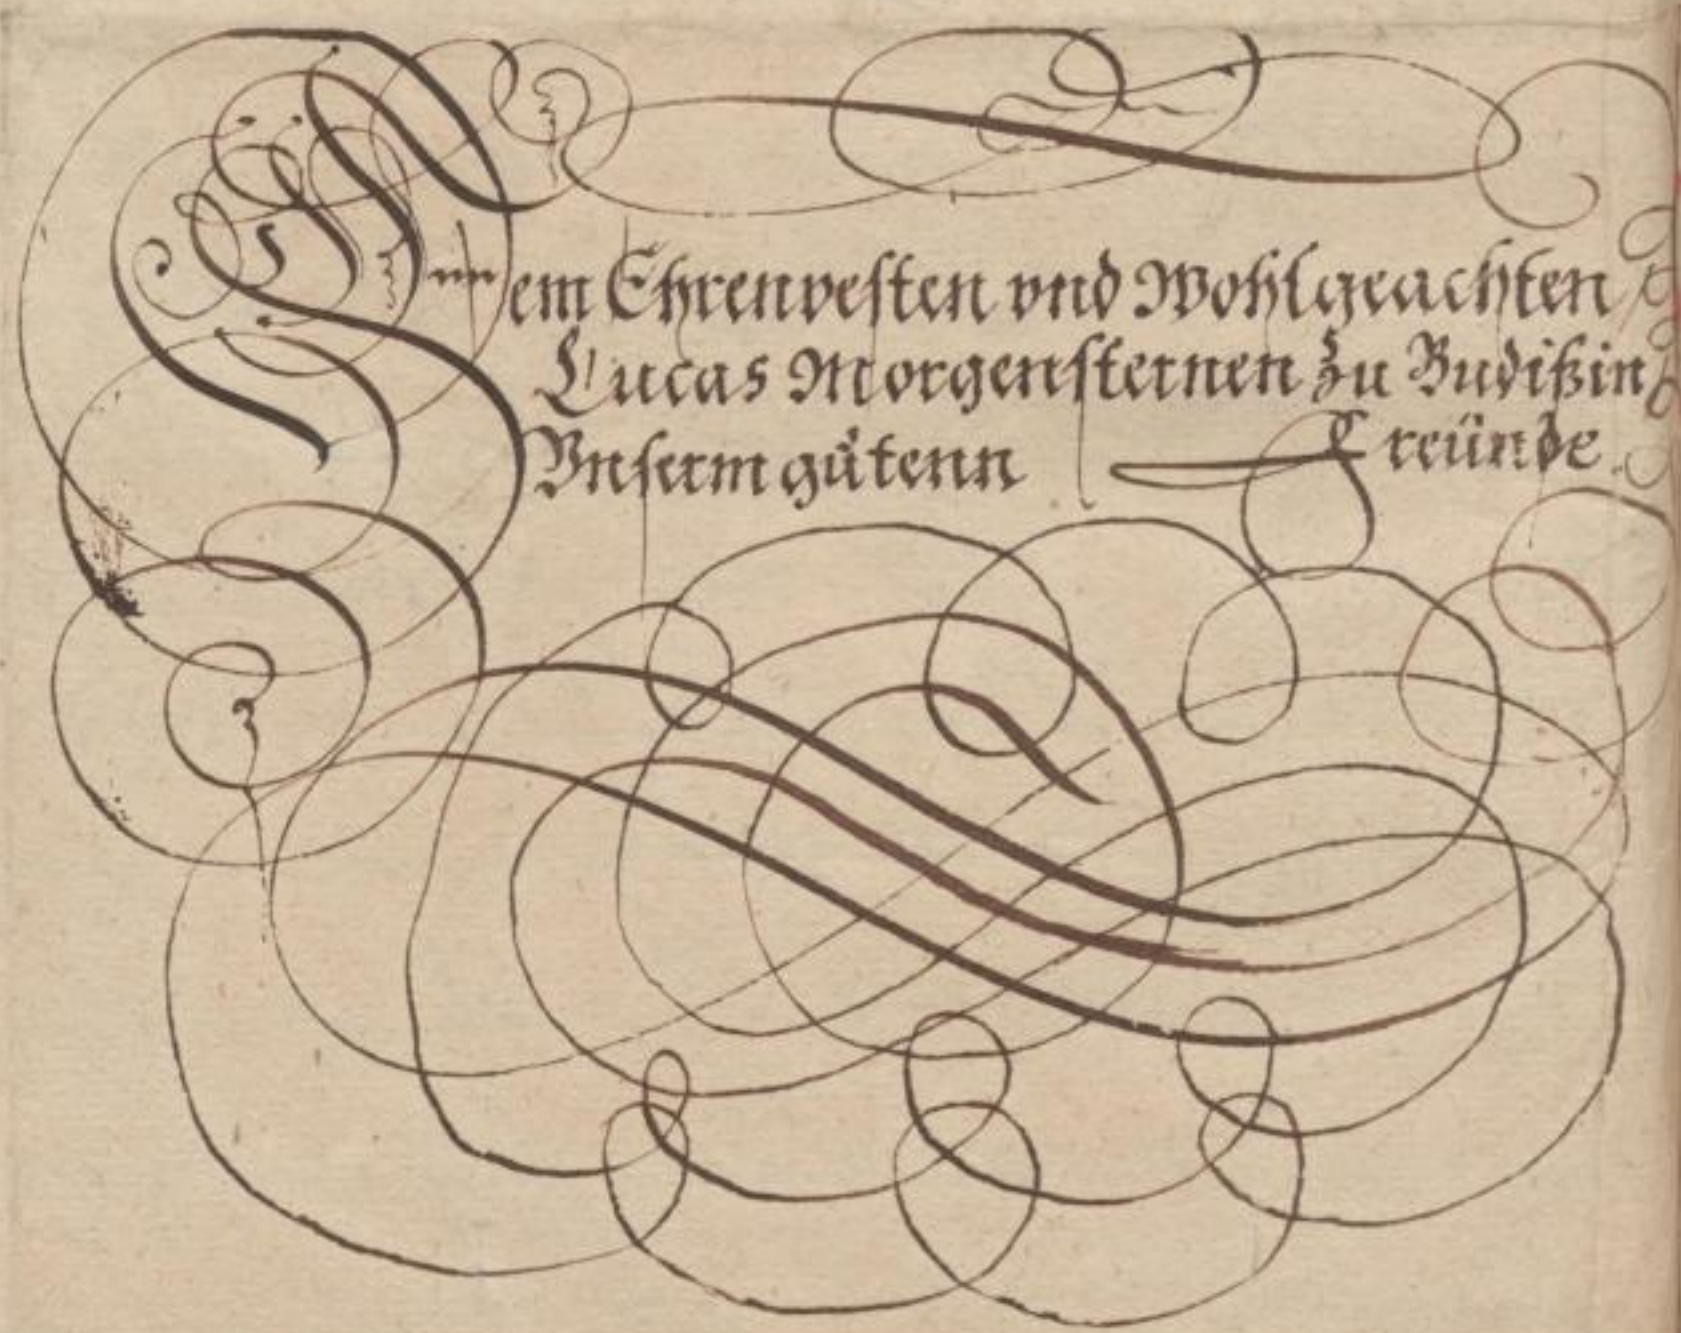 Dem Ehrenvesten vnd Wohlgeachten
Lucas Morgensternen zu Budißin
Vnserm gůtenn Freünde.